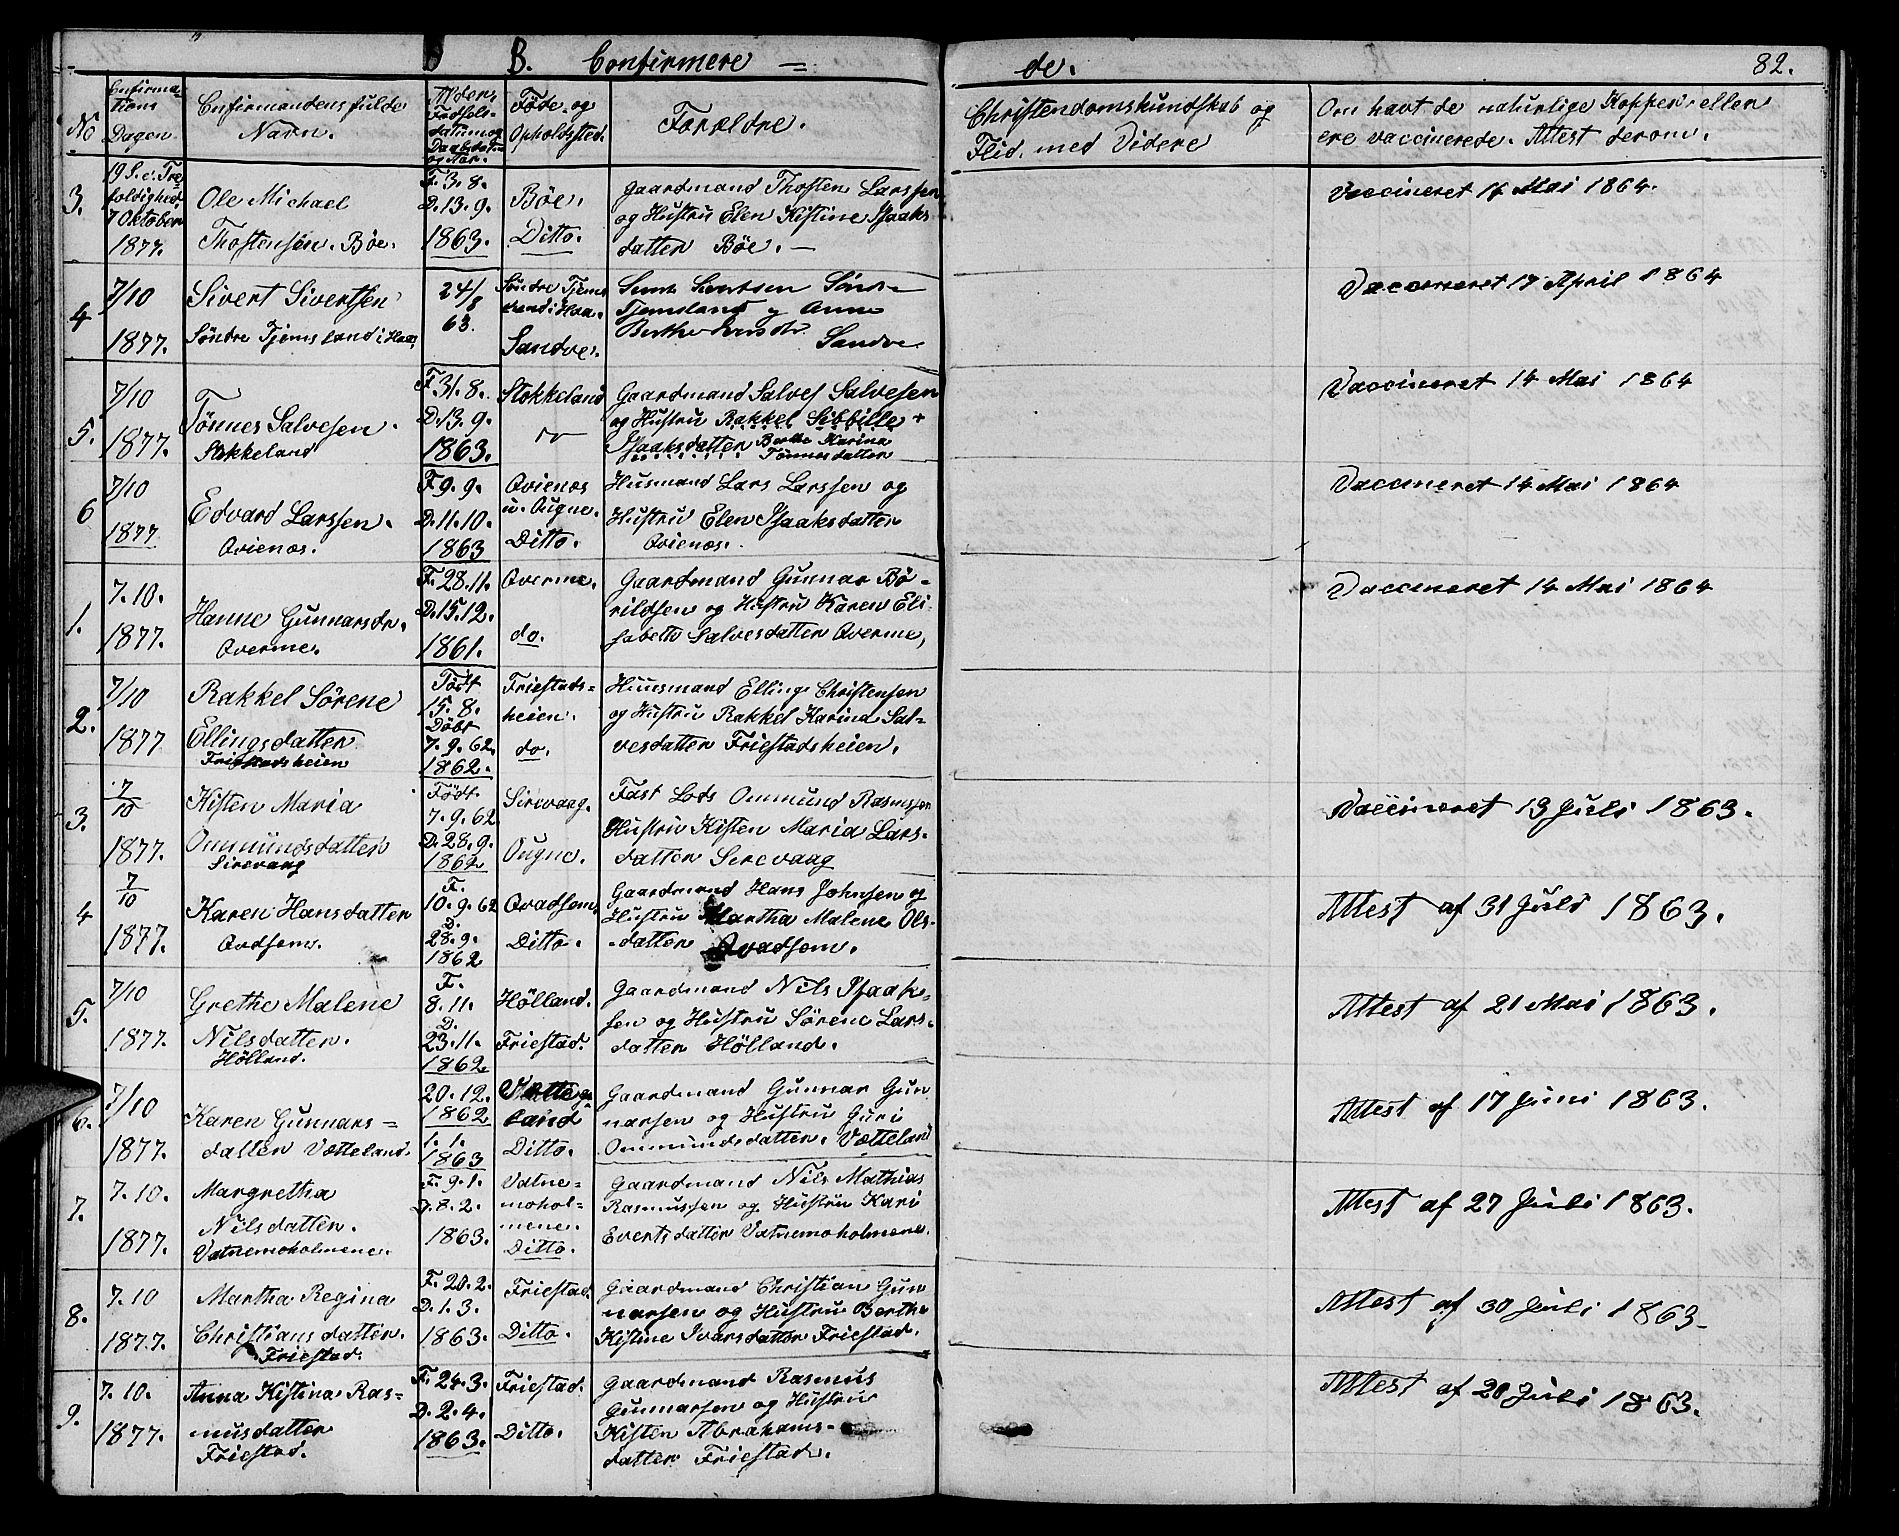 B. Confirmere = de. 82.
No
Confirma-
tions
Dagen
Confirmandens fulde
Navn.
Føde og
Opholdsted.
Forældre.
Christendomskundskab og
Flid. med Videre
Om havt de naturlige Kopper eller
ere vaccinerede. Attest derom.
3.
19 S. e. Tre
foldighed
7 Oktober
1877.
Ole Michael
Thostensen. Bøe.
F. 3. 8.
D. 13. 9.
1863.
Bøe.
Ditto.
Gaardmand Thosten Larssen
og Hustru Elen Kistine Isaaks
datter Bøe. —
Vaccineret 14 Mai 1864.
4
7/10
1877.
Sivert Sivertsen
Søndre Tjemsland i Haa
24/8
63.
Søndre Tjems
land i Haa.
Sandve.
Sivert Sivertsen Søndre
Tjemsland og Anne
Berthe Sandve
Vaccineret 17 April 1864
5.
7/10
1877.
Tønnes Salvesen.
Stokkeland
F. 31. 8.
D. 13. 9.
1863.
Stokkeland
Gaardmand Salves Salvesen
og Hustru Rakkel Sibbille +
Isaaksdatter Berthe Karina
Tønnesdatter
Vaccineret 14 Mai 1864
6
7/10
1877
Edvard Larssen.
Qvienæs.
F. 9. 9.
D. 11. 10.
1863
Qvienæs
u. Ougne.
Ditto.
Husmand Lars Larssen og
Hustru Elen Isaaksdatter
Qvienæs.
Vaccineret 14 Mai 1864
1.
7. 10.
1877.
Hanne Gunnarsdr.
Qverme.
F. 28. 11.
D. 15. 12.
1861.
Qverme.
do.
Gaardmand Gunnar Bø-
rildsen og Hustru Karen Eli-
sabeth Salvesdatter Qverme,
Vaccineret 14 Mai 1864
2.
7/10
1877
Rakkel Sørene
Ellingsdatter
Friestadsheien
Født
15. 8.
Døbt
7. 9. 62.
1862.
Friestads=
heien.
do.
Huusmand Elling Christensen
og Hustru Rakkel Karina Sal-
vesdatter Friestadsheien.
3.
7/10
1877.
Kisten Maria
Ommundsdatter
Sirevaag
Født
7. 9. 62
D. 28. 9.
1862
Sirevaag.
Ougne.
Fast Lods Ommund Rasmssen
Hustru Kisten Maria Lars-
datter Serevaag
Vaccineret 13 Juli 1863.
4
7/10
1877.
Karen Hansdatter
Qvdsem.
F.
10. 9. 62
D.
28. 9.
1862
Qvadsem.
Ditto.
Gaardmand Hans Johnsen og
Hustru Martha Malene Ols-
-datter Qvadsem.
Attest af 31 Juli 1863.
5.
7/10
1877.
Grethe Malene
Nilsdatter.
Hølland.
F.
8. 11.
D.
23. 11.
1862.
Hølland.
Friestad.
Gaardmand Nils Isaak-
sen og Hustru Sørene Lars-
datter Hølland.
Attest af 21 Mai 1863.
6.
7/10
1877.
Karen Gunnars=
datter Vætteland.
20. 12.
1862
1. 1.
1863
Vætte
land
Ditto.
Gaardmand Gunnar Gun
narsen og Hustru Guri
Ommundsdatter. Vætteland
Attest af 17 Juni 1863.
7.
7. 10.
1877.
Margretha
Nilsdatter.
Vatnemoholmene.
F. 9. 1.
D. 8. 2.
1863.
Vatne=
mohol-
mene.
Ditto.
Gaardmand Nils Mathias
Rasmussen og Hustru Kari
Evertsdatter Vatnemoholmene.
Attest af 27 Juli 1863.
8.
7. 10
1877.
Martha Regina
Christiansdatter.
Friestad.
F. 20. 2.
D. 1. 3.
1863.
Friestad.
Ditto.
Gaardmand Christian Gun
narsen og Hustru Berthe
Kistine Ivarsdatter Friestad.
Attest af 30 Juli 1863.
9.
7. 10.
1877.
Anna Kistina Ras=
musdatter
Friestad.
F. 24. 3.
D. 2. 4.
1863.
Friestad.
Ditto.
Gaardmand Rasmus
Gunnarsen og Hustru
Kisten Abrahams-
datter Friestad.
Attest af 20 Juli 1863.